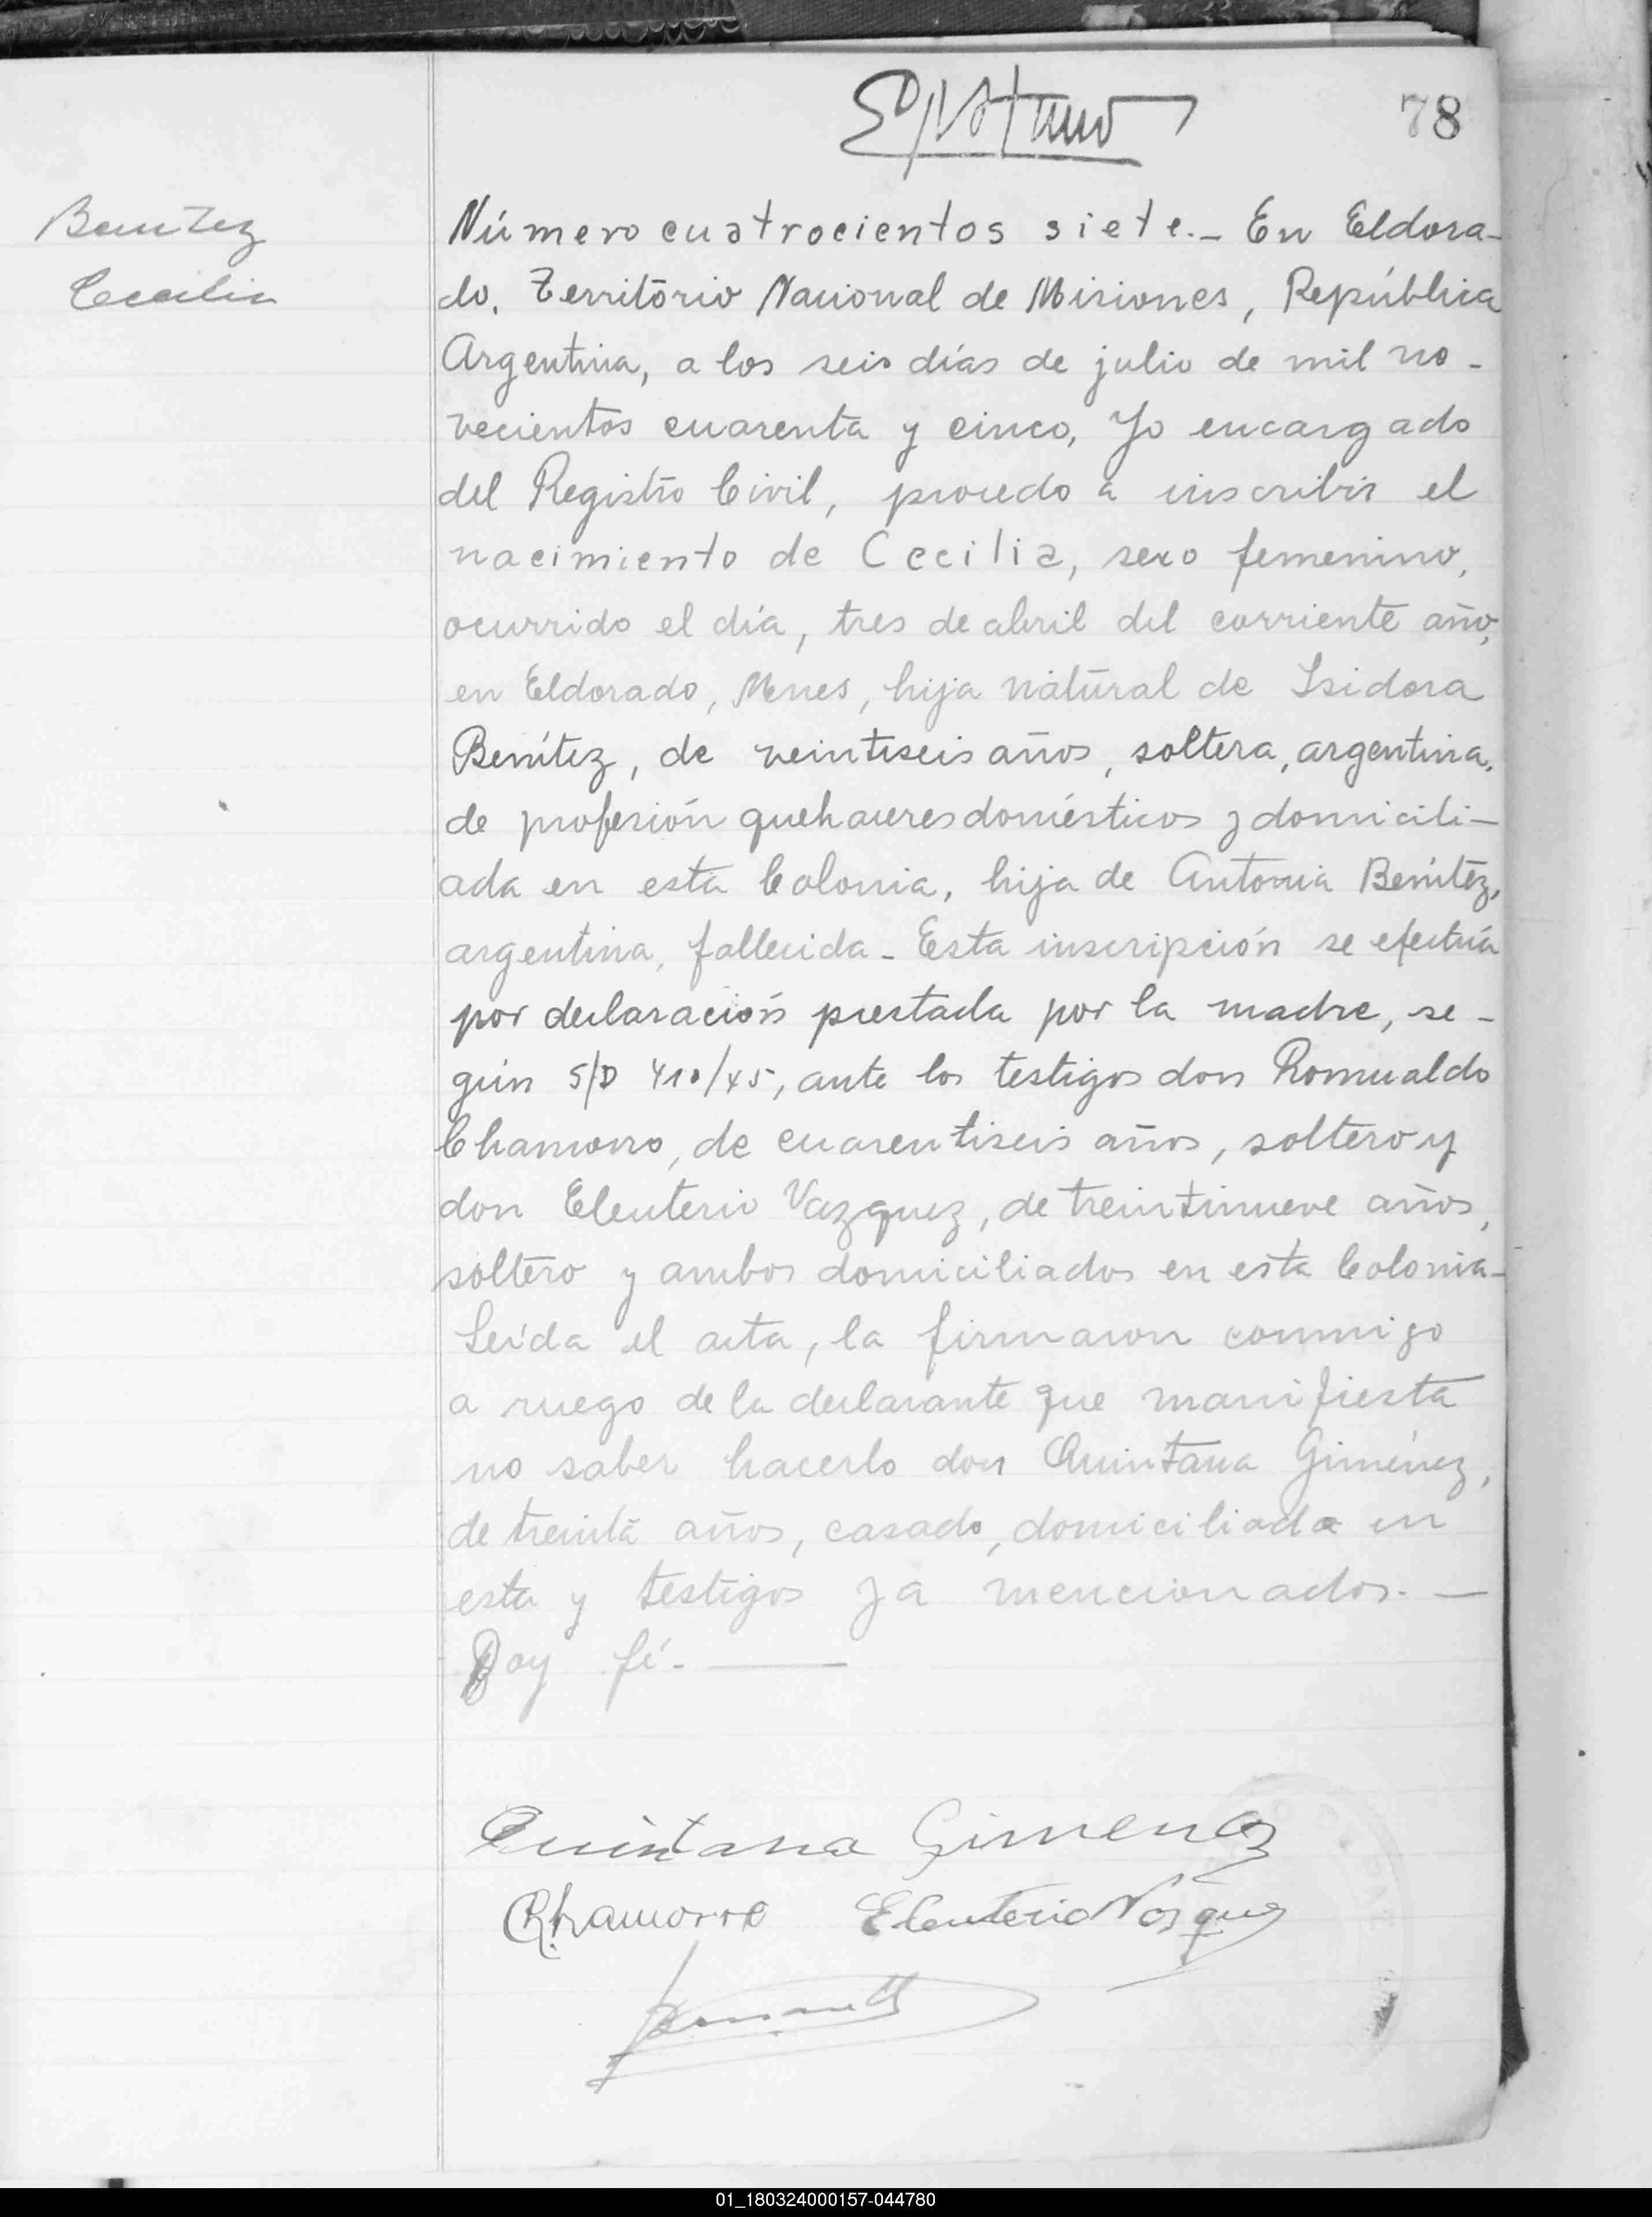 78
Benítez
Cecilia
Número cuatrocientos siete.- En Eldora-
do, Território Nacional de Misiones, República
Argentina, a los seis días de julio de mil no-
vecientos cuarenta y cinco, Yo encargado
del Registro Civil, procedo a inscribir el
nacimiento de Cecilia, sexo femenino,
ocurrido el día, tres de abril del corriente año,
en Eldorado, Mnes, hija natural de Isidora
Benítez, de veintiseis años, soltera, argentina,
de profesión quehaceres domésticos y domicili-
ada en esta Colonia, hija de Antonia Benítez,
argentina, fallecida - Esta inscripción se efectúa
por declaración prestada por la madre, se-
gún S/D 410/45, ante los testigos don Romualdo
Chamorro, de cuarentiseis años, soltero y
don Eleuterio Vazquez, de treintinueve años,
soltero y ambos domiciliados en esta Colonia-
Leída el acta, la firmaron conmigo
a ruego de la declarante que manifiesta
no saber hacerlo don Quintana Giménez,
de treinta años, casado, domiciliado en
esta y testigos ya mencionados. —
Doy fé. —
Quintana Gimenez
RChamorro Eleuterio Vasquez
01_180324000157-044780